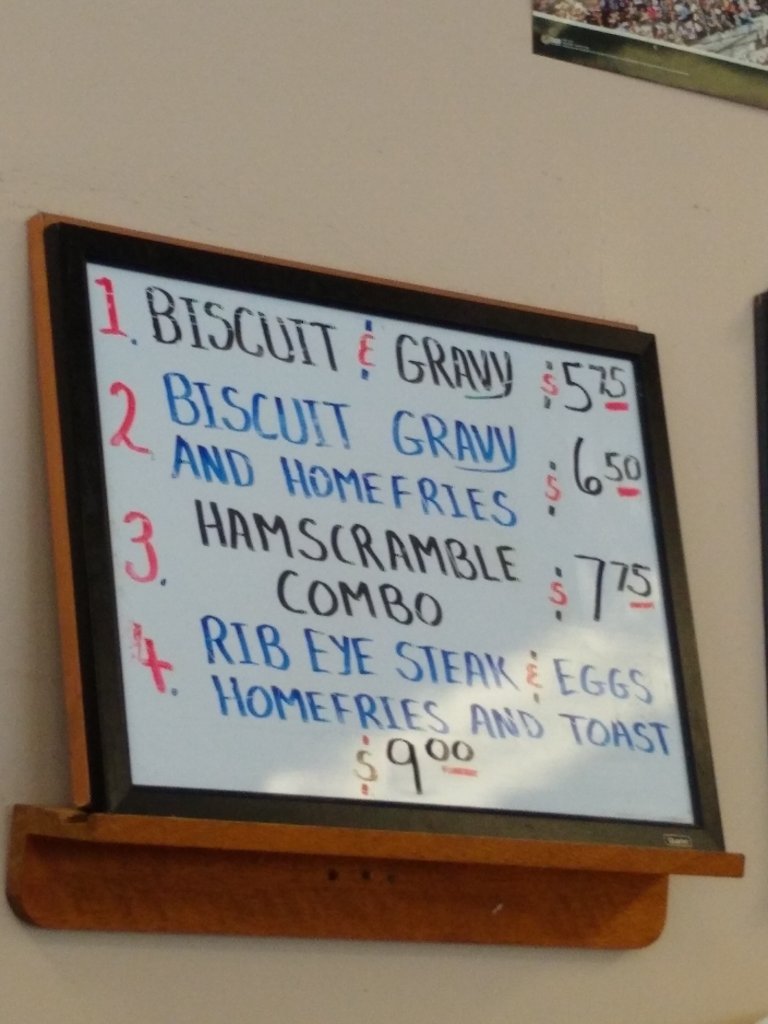 1. BISCUIT & GRAVY $5.75
2 BISCUIT GRAVY
AND HOMEFRIES $6.50
3. HAMSCRAMBLE
COMBO $7.75
4. RIB EYE STEAK & EGGS
HOMEFRIES AND TOAST
$9.00